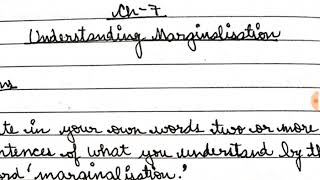 Ch-7
Understanding Marginalisation
ns
te in your own words two or more
ntences of what you understand by th
ord 'marginalisation.'